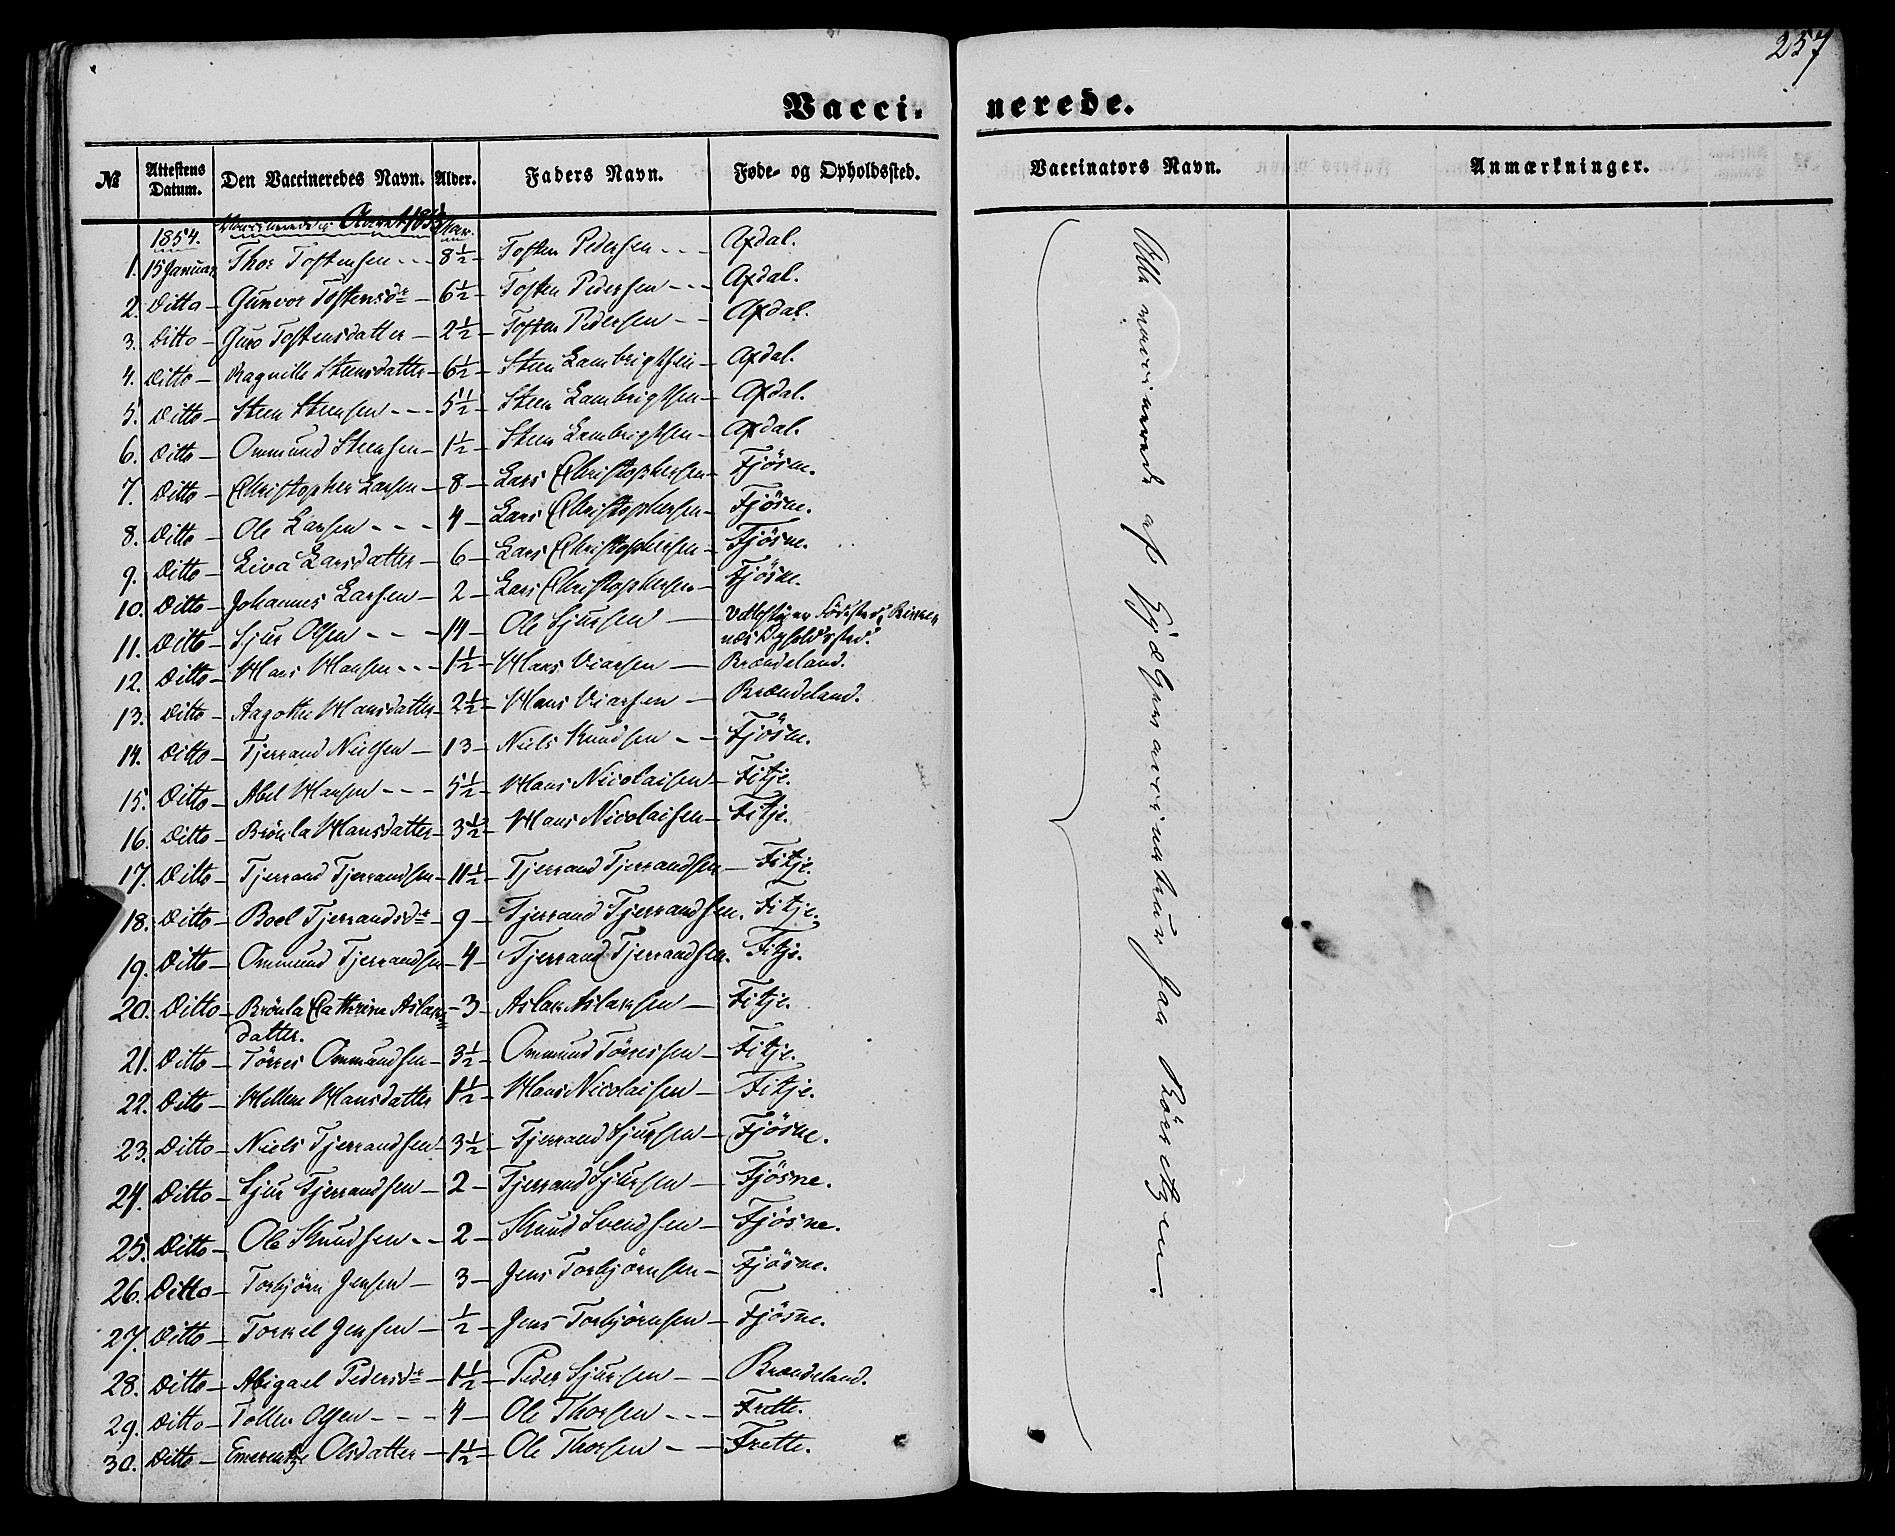 257
Vacci- nerede.
№ Attestens Datum. Den Vaccineredes Navn. Alder. Faders Navn. Føde- og Opholdssted. Vaccinators Navn. Anmærkninger.
1854. Vaccinerede i Aaret 1853 Aar.
1. 15 Januar Thor Tostensen - - - 8½ - Tosten Pedersen - - - Apdal.
2. Ditto - Gunvor Tostensdr - 6½ - Tosten Pedersen - - - Apdal.
3. Ditto - Guro Tostensdatter - 2½ - Tosten Pedersen - - Apdal.
4. Ditto - Ragnille Steensdatter - 6½ - Steen Lambrigtsen - Apdal.
5. Ditto - Steen Steensen - - - 5½ - Steen Lambrigtsen - Apdal.
6. Ditto - Ommund Steensen - 1½ - Steen Lambrigtsen - Apdal.
7. Ditto - Christopher Larsen - 8 - Lars Christophersen - Fjösne.
8. Ditto - Ole Larsen - - - 4 - Lars Christophersen - Fjösne.
9. Ditto - Liva Larsdatter - 6 - Lars Christophersen - Fjösne.
10. Ditto - Johannes Larsen - 2 - Lars Christophersen - Fjösne.
11. Ditto - Sjur Olsen - - - 14 - Ole Sjursen - Födested,
næs Opholdssted.
12. Ditto - Hans Hansen - - - 1½ - Hans Viersen - Brændeland.
13. Ditto - Aagothe Hansdatter - 2½ - Hans Viersen - Brændeland.
14. Ditto - Tjerrand Nielsen - 13 - Niels Knudsen - - Fjösne.
15. Ditto - Abel Hansen - - - 5½ - Hans Nicolaisen - Fitje.
16. Ditto - Brönla Hansdatter - 3½ - Hans Nicolaisen - Fitje.
17. Ditto - Tjerrand Tjerrandsen - 11½ - Tjerrand Tjerrandsen - Fitje.
18. Ditto - Boel Tjerrandsdr - 9 - Tjerrand Tjerrandsen. Fitje.
19. Ditto - Ommund Tjerrandsen - 4 - Tjerrand Tjerrandsen. Fitje.
20. Ditto - Brönla Cathrine Aslak= - 3 - Aslak Aslaksen - Fitje.
datter.
21. Ditto - Törres Ommundsen - 3½ - Ommund Törressen - Fitje.
22. Ditto - Hellene Hansdatter 1½ - Hans Nicolaisen - Fitje.
23. Ditto - Niels Tjerrandsen - 3½ - Tjerrand Sjursen - Fjösne.
24. Ditto - Sjur Tjerrandsen - 2 - Tjerrand Sjursen - Fjösne.
25. Ditto - Ole Knudsen - - 2 - Knud Svendsen - Fjösne.
26. Ditto - Torbjörn Jensen - 3 - Jens Torbjörnsen - Fjösne.
27. Ditto - Torkel Jensen - ½ - Jens Torbjörnsen - Fjösne.
28. Ditto - Abigael Pedersdr - 1½ - Peder Sjursen - - Brændeland.
29. Ditto - Tollev Olsen - - - 4 - Ole Thorsen - - - Frette.
30. Ditto - Emerentze Olsdatter - 1½ - Ole Thorsen - - Frette.
Alle vaccinerede af Hjælpevaccinateur Jaa